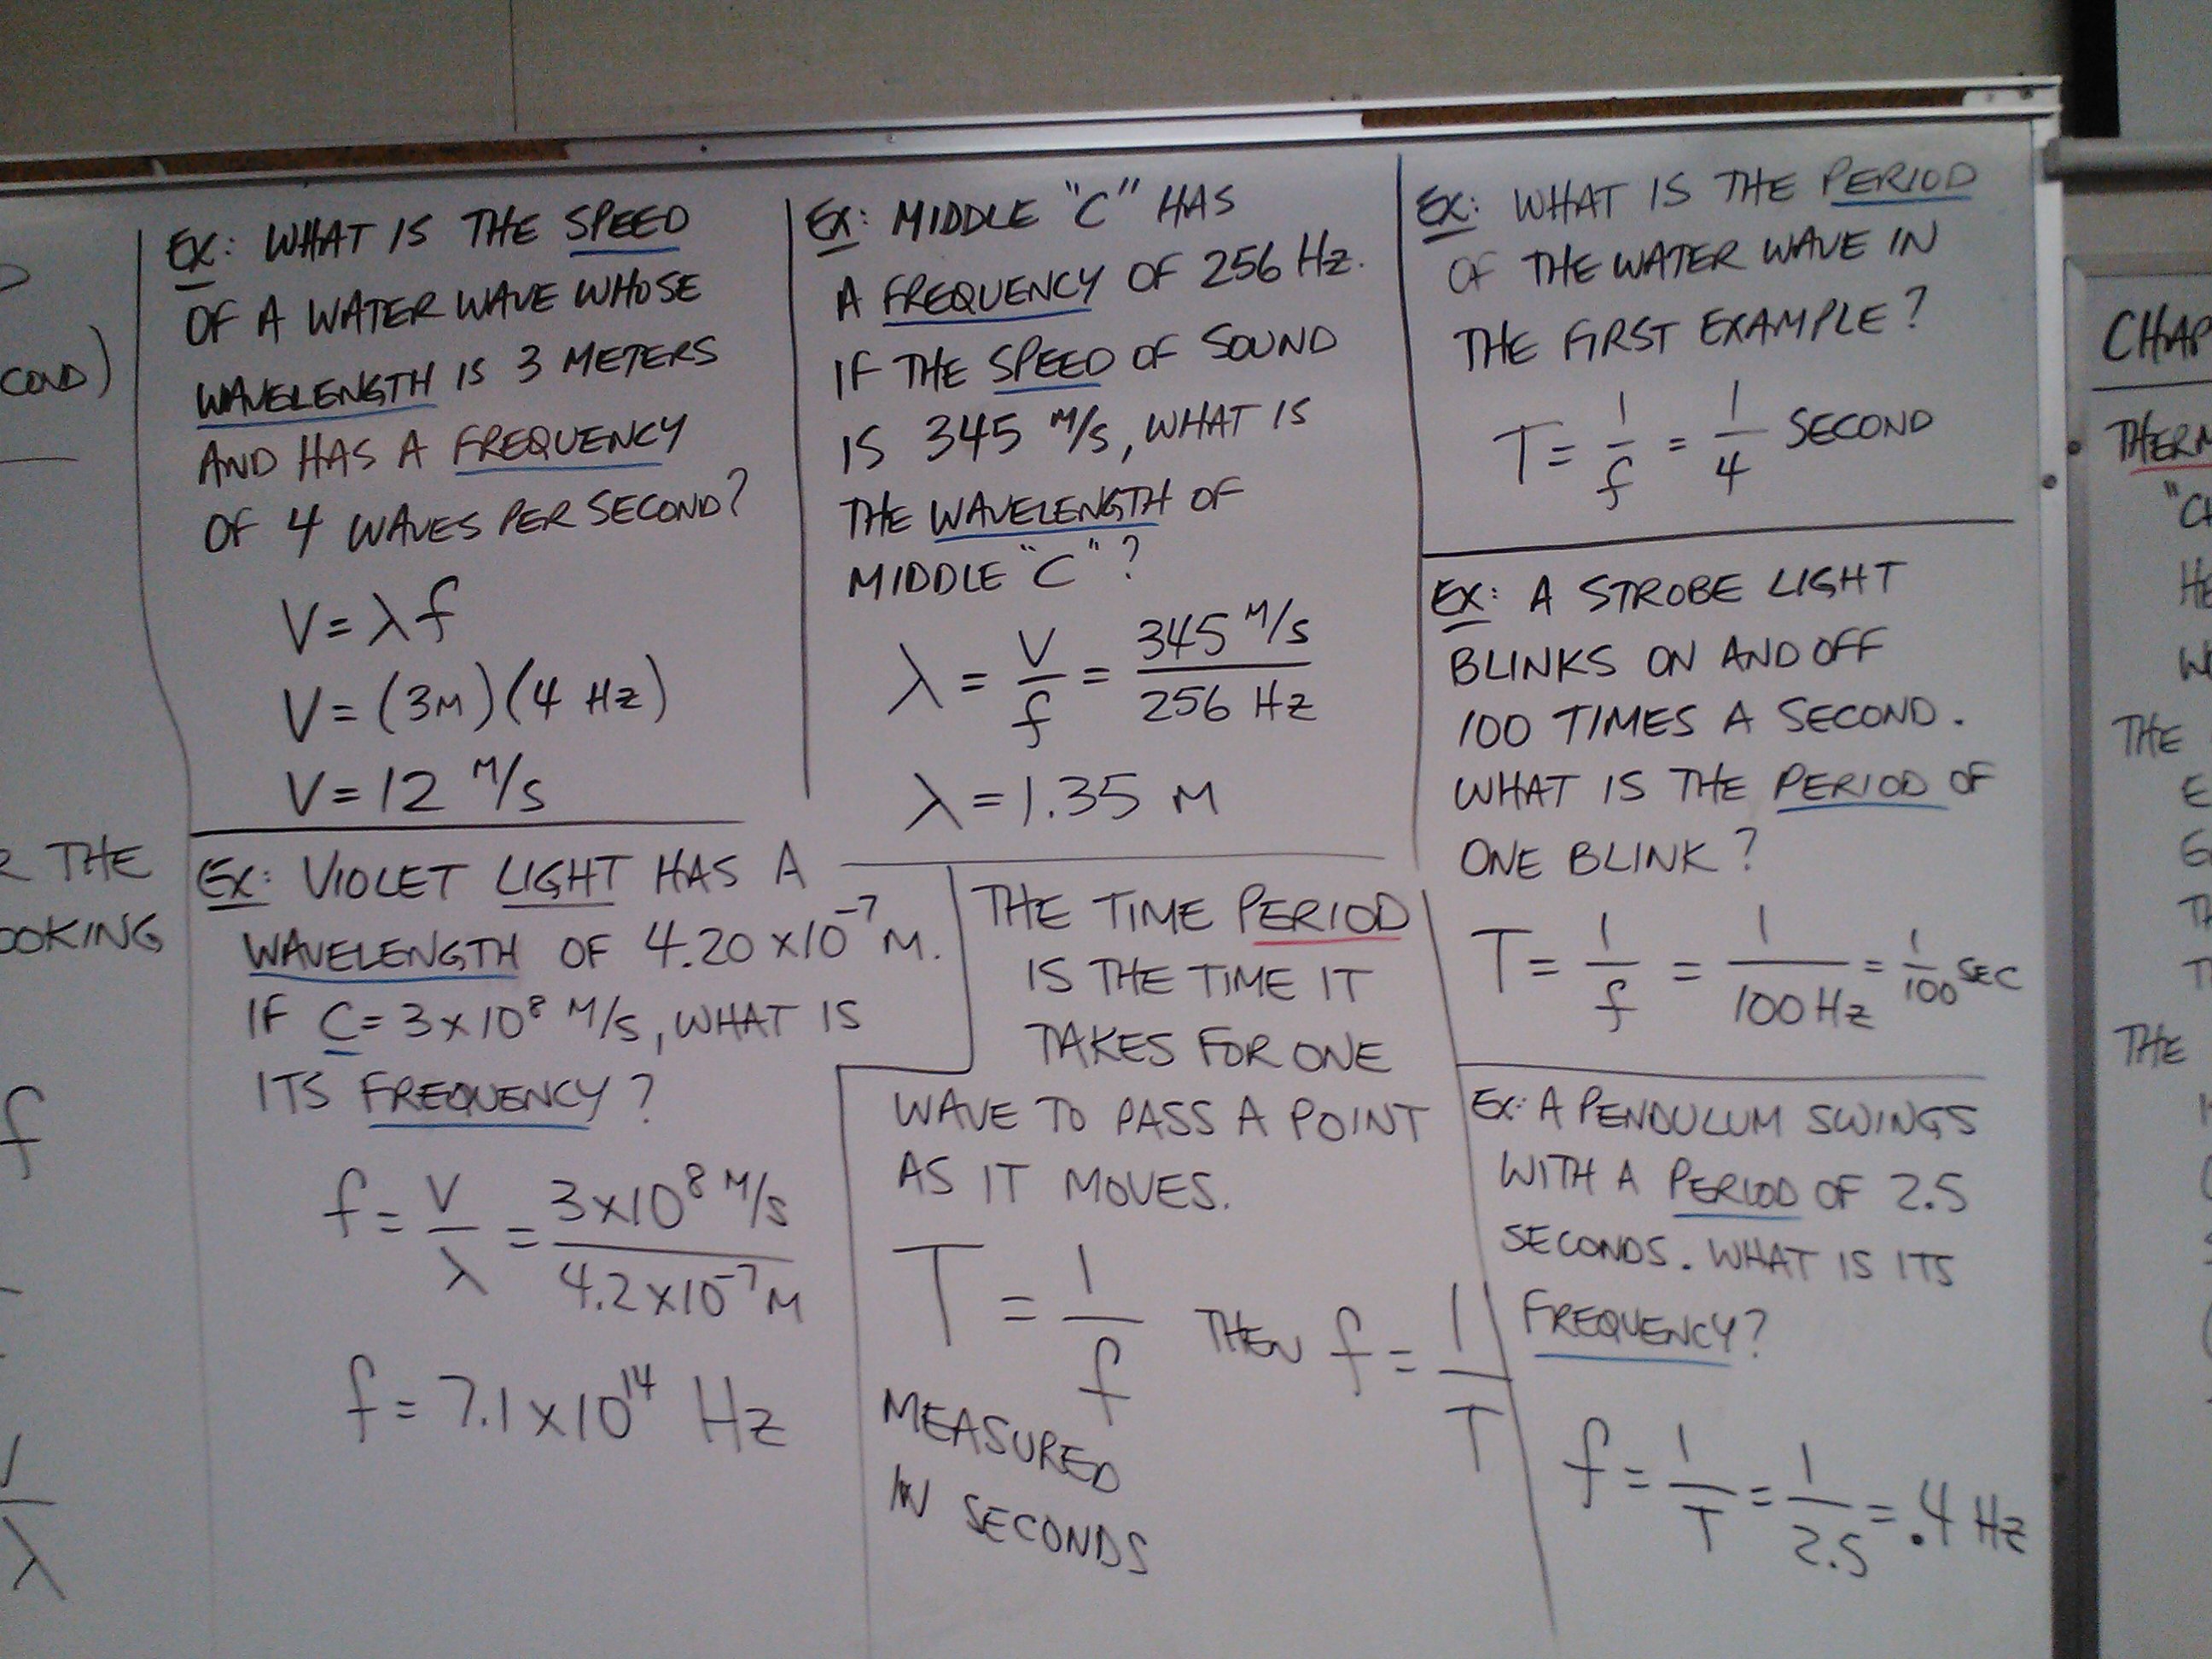 COND)
R THE
OOKING
f
V
λ
EX: WHAT IS THE SPEED
OF A WATER WAVE WHOSE
WAVELENGTH IS 3 METERS
AND HAS A FREQUENCY
OF 4 WAVES PER SECOND?
V = λ f
V = (3M)(4 Hz)
V = 12 M/S
EX: MIDDLE "C" HAS
A FREQUENCY OF 256 Hz.
IF THE SPEED OF SOUND
IS 345 M/S, WHAT IS
THE WAVELENGTH OF
MIDDLE "C"?
λ = V/f = 345 M/S / 256 Hz
λ = 1.35 M
EX: WHAT IS THE PERIOD
OF THE WATER WAVE IN
THE FIRST EXAMPLE?
T = 1/f = 1/4 SECOND
EX: A STROBE LIGHT
BLINKS ON AND OFF
100 TIMES A SECOND.
WHAT IS THE PERIOD OF
ONE BLINK?
T = 1/f = 1/100 Hz = 1/100 SEC
EX: VIOLET LIGHT HAS A
WAVELENGTH OF 4.20 x 10⁻⁷ M.
IF C = 3 x 10⁸ M/S, WHAT IS
ITS FREQUENCY?
f = V/λ = 3x10⁸ M/S / 4.2x10⁻⁷ M
f = 7.1 x 10¹⁴ Hz
THE TIME PERIOD
IS THE TIME IT
TAKES FOR ONE
WAVE TO PASS A POINT
AS IT MOVES.
T = 1/f THEN f = 1/T
MEASURED
IN SECONDS
EX: A PENDULUM SWINGS
WITH A PERIOD OF 2.5
SECONDS. WHAT IS ITS
FREQUENCY?
f = 1/T = 1/2.5 = .4 Hz
CHAP
THERM
"CH
HE
THE
E
TH
T
THE